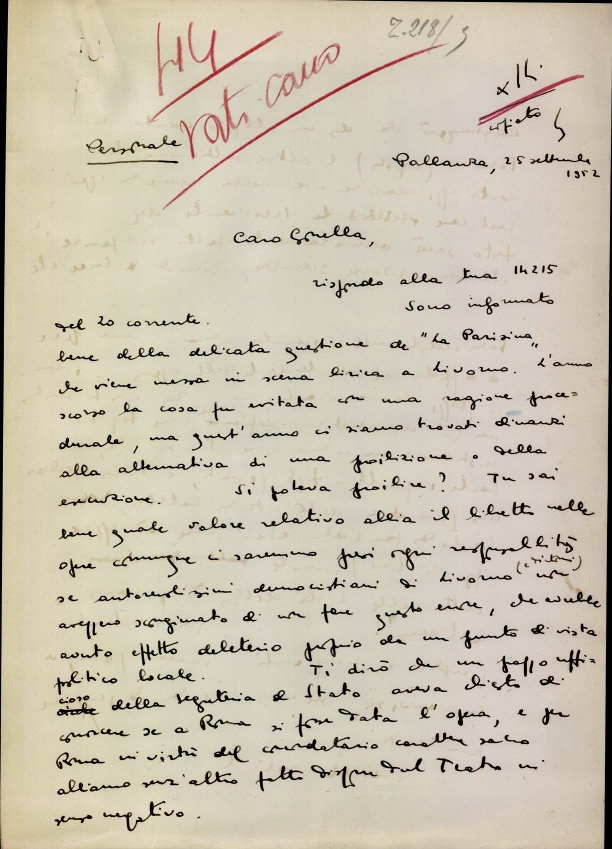 44
Vaticano
Z.218/9
Personale
copiato
Pallanza, 25 settembre
1952
Caro Gonella,
rispondo alla tua 14215
del 20 corrente. Sono informato
bene della delicata questione de "La Parisina"
che viene messa in scena lirica a Livorno. L'anno
scorso la cosa fu evitata con una ragione proce=
durale, ma quest'anno ci siamo trovati dinanzi
alla alternativa di una proibizione o della
esecuzione. Si poteva proibire? Tu sai
bene quale valore relativo abbia il libretto nelle
opere comunque ci saremmo presi ogni responsabilità
se autorevolissimi democristiani di Livorno non
avessero scongiurato di non fare questo errore, che avrebbe
avuto effetto deleterio proprio da un punto di vista
politico locale. Ti dirò che un passo uffi=
cioso
della Segreteria di Stato aveva chiesto di
conoscere se a Roma si fosse data l'opera, e per
Roma in virtù del concordatario carattere sacro
abbiamo senz'altro fatto disporre dal Teatro in
senso negativo.